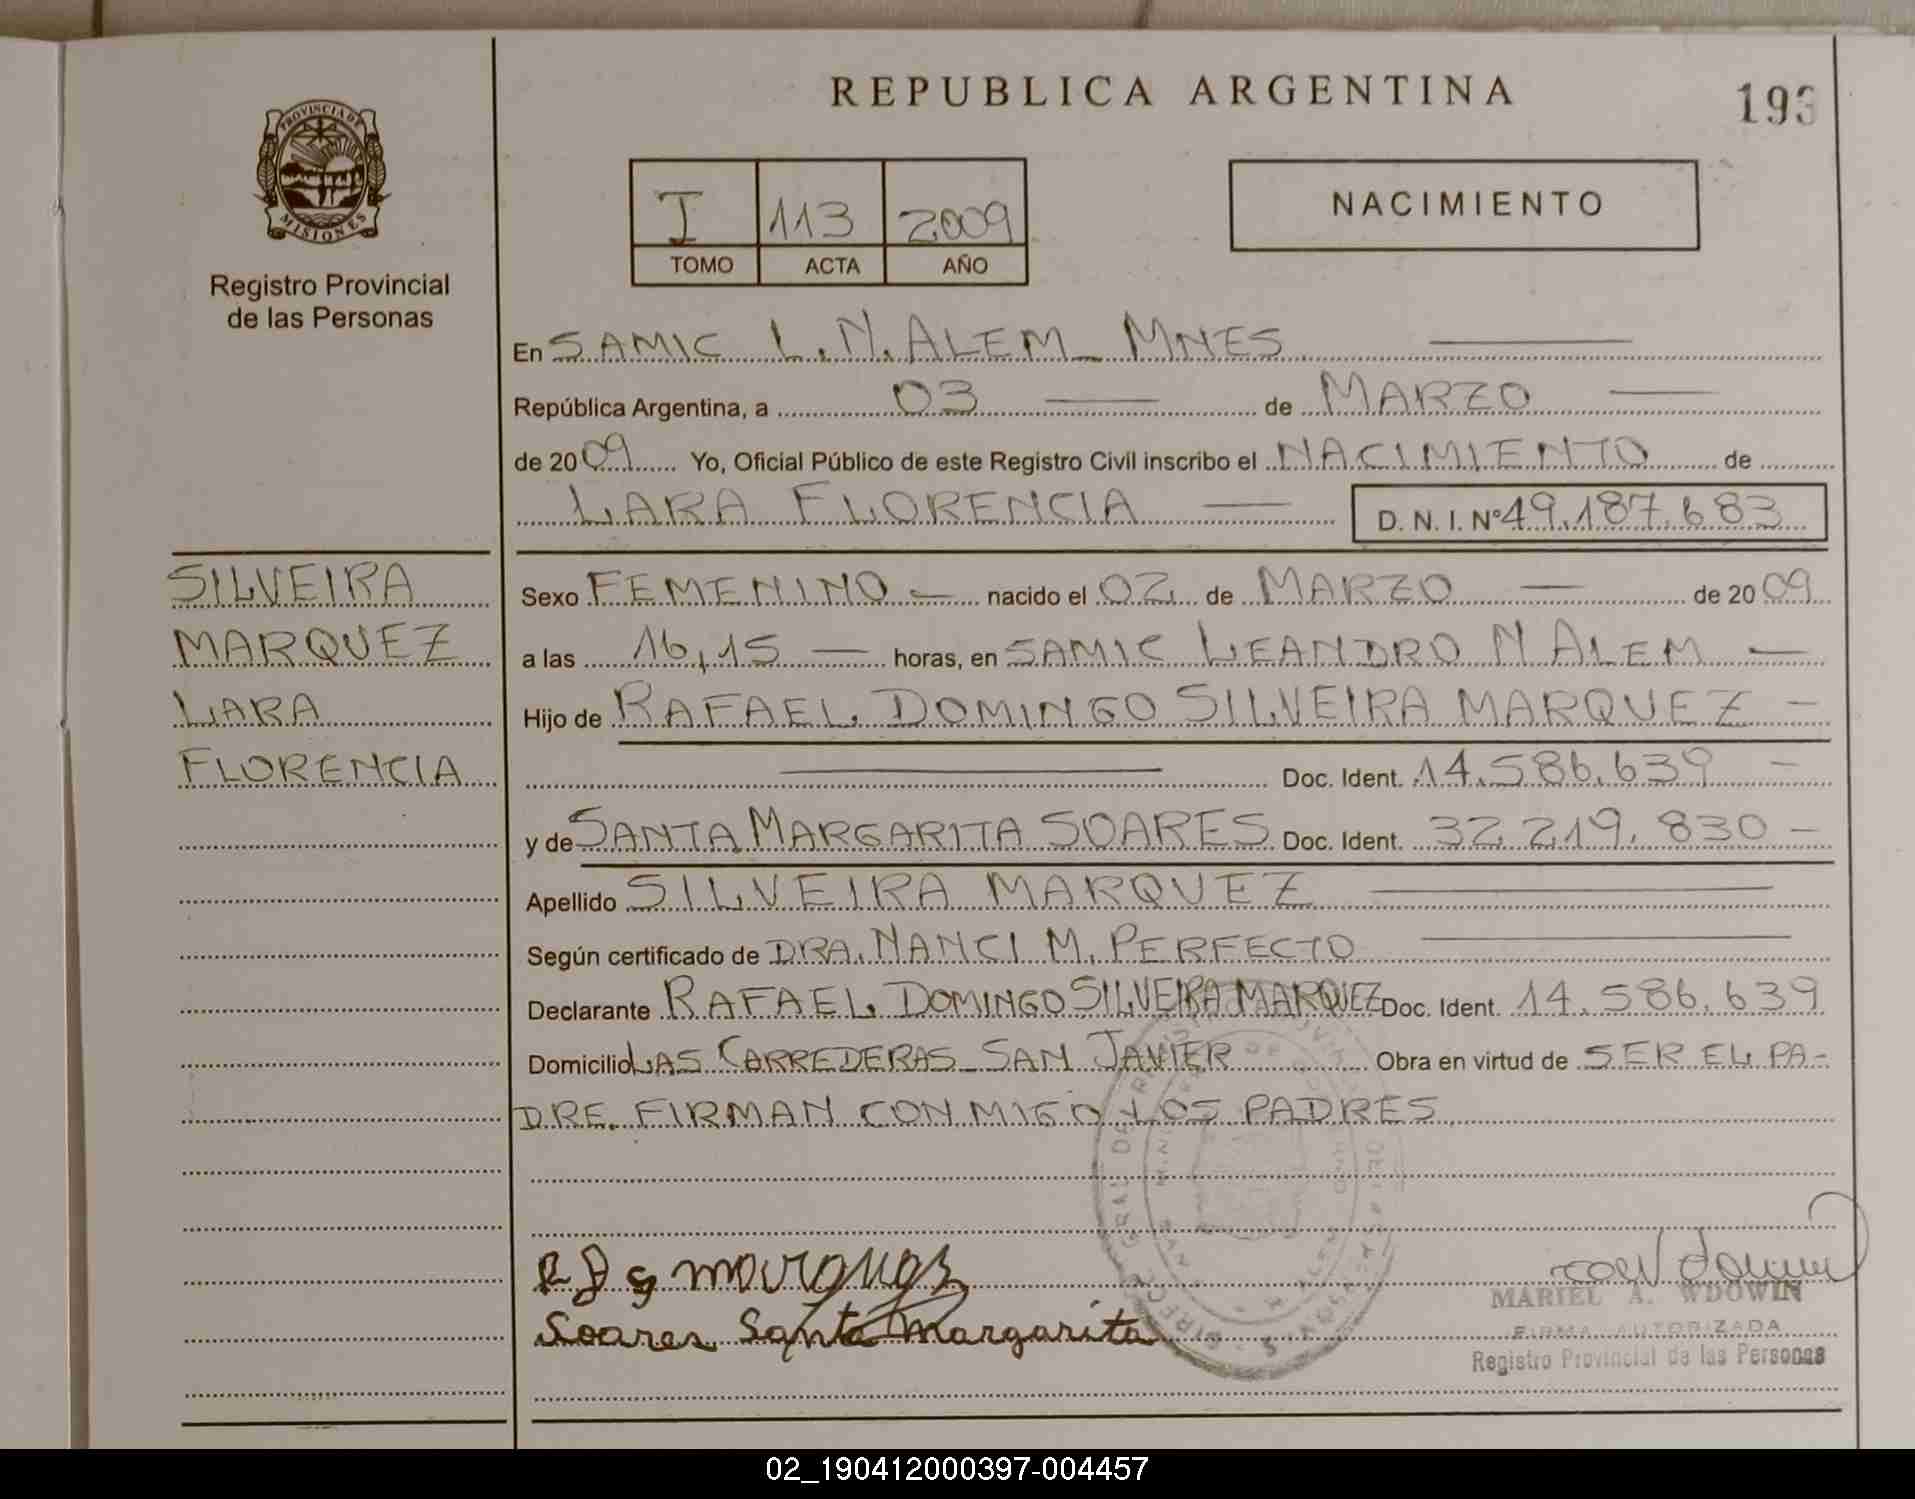 REPUBLICA ARGENTINA
193
PROVINCIA DE
MISIONES
Registro Provincial
de las Personas
I 113 2009
TOMO ACTA AÑO
NACIMIENTO
En SAMIC L.N. ALEM - MNES
República Argentina, a 03 de MARZO
de 2009 Yo, Oficial Público de este Registro Civil inscribo el NACIMIENTO de
LARA FLORENCIA D. N. I. Nº 49.187.683
SILVEIRA
MARQUEZ
LARA
FLORENCIA
Sexo FEMENINO - nacido el 02 de MARZO - de 2009
a las 16,15 - horas, en SAMIC LEANDRO N ALEM -
Hijo de RAFAEL DOMINGO SILVEIRA MARQUEZ -
Doc. Ident. 14.586.639 -
y de SANTA MARGARITA SOARES Doc. Ident. 32.219.830 -
Apellido SILVEIRA MARQUEZ
Según certificado de DRA. NANCI M. PERFECTO
Declarante RAFAEL DOMINGO SILVEIRA MARQUEZ Doc. Ident. 14.586.639
Domicilio LAS CARREDERAS - SAN JAVIER Obra en virtud de SER EL PA-
DRE. FIRMAN CONMIGO LOS PADRES
R D S Marques
Soares Santa Margarita
MARIEL A. WDOWIN
FIRMA AUTORIZADA
Registro Provincial de las Personas
02_190412000397-004457